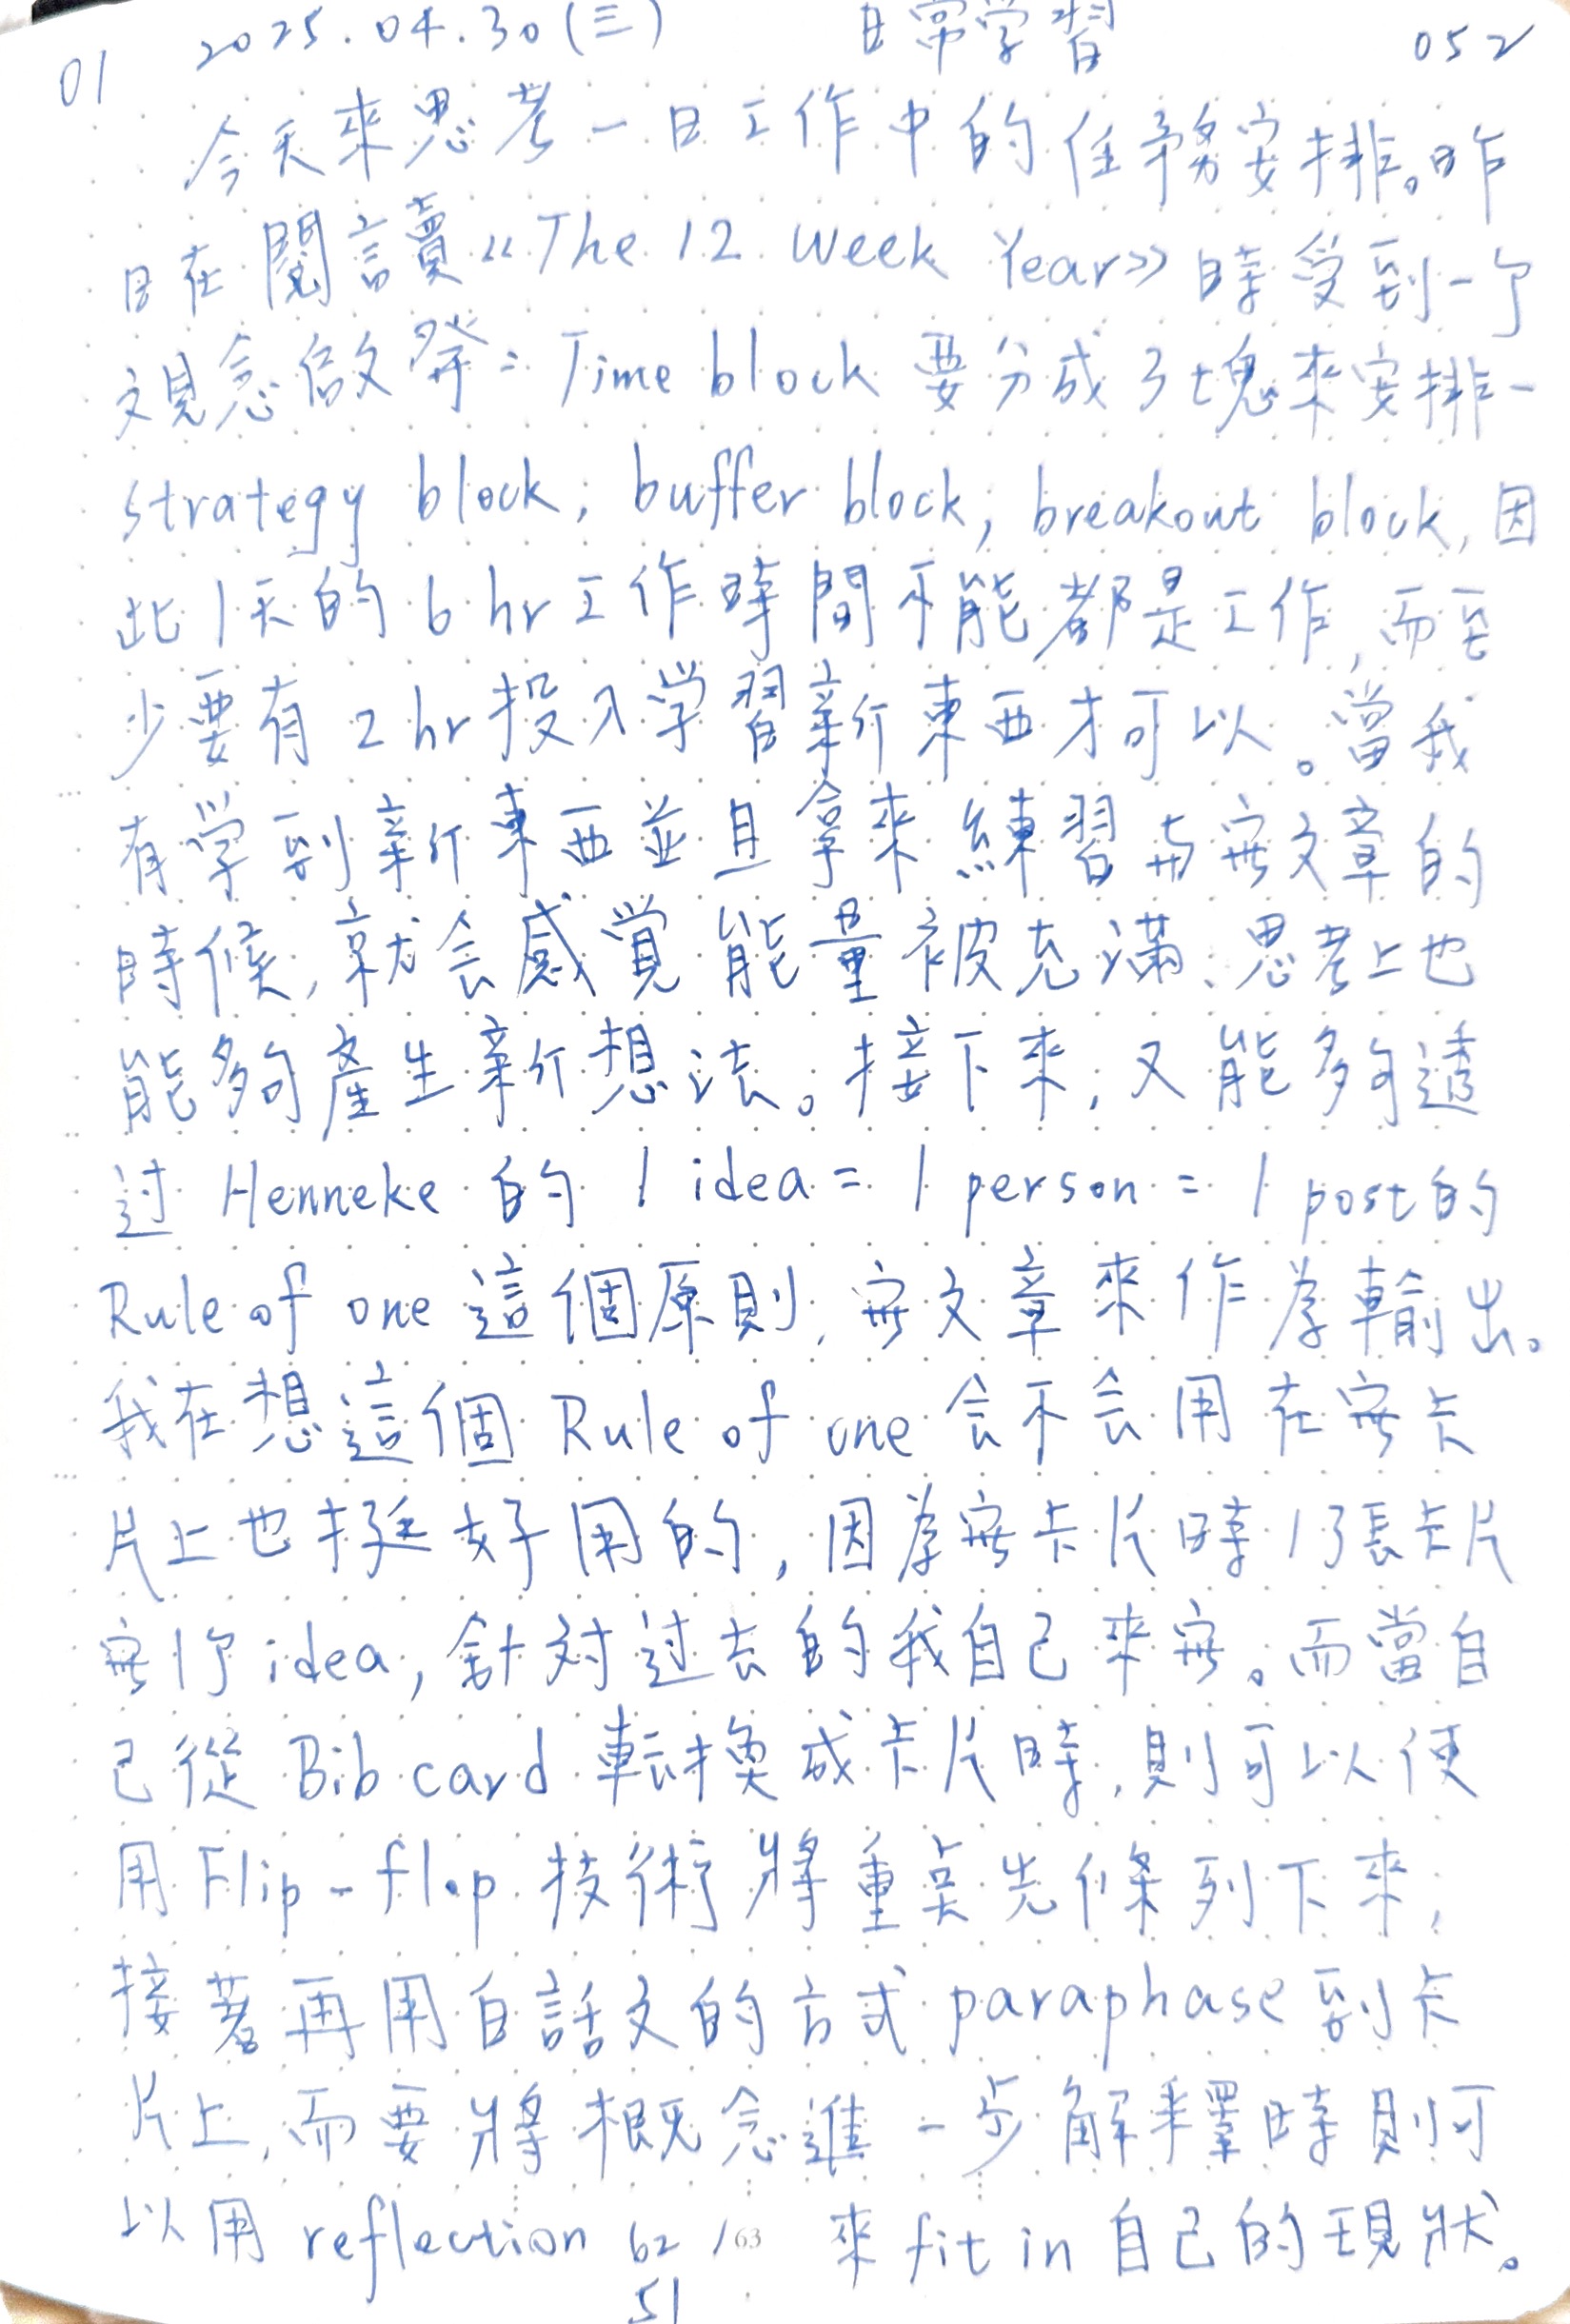 01 2025.04.30(三) 日常学習 052
今天來思考一日工作中的任務安排。昨
日在閱讀《The 12 Week Year》時受到一个
观念啟発:Time block 要分成3塊來安排-
strategy block, buffer block, breakout block, 因
此1天的6hr工作時間不能都是工作,而至
少要有2hr投入学習新東西才可以。當我
有学到新東西並且拿來練習与寫文章的
時候,就会感覚能量被充滿、思考上也
能夠產生新想法。接下來,又能夠透
过 Henneke 的 1 idea = 1 person = 1 post的
Rule of one 這個原則,寫文章來作為輸出。
我在想這個 Rule of one 会不会用在寫卡
片上也挺好用的,因為寫卡片時1張卡片
寫1个idea,針对过去的我自己來寫。而當自
己從 Bib card 転換成卡片時,則可以使
用 Flip-flop 技術將重点先條列下來,
接著再用白話文的方式 paraphase 到卡
片上,而要將概念進一步解釋時則可
以用 reflection 來 fit in 自己的現狀。
62 / 63
51